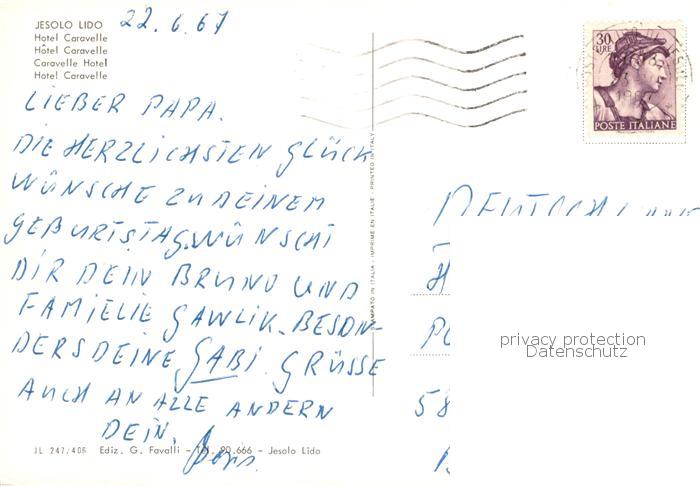 JESOLO LIDO
Hotel Caravelle
Hôtel Caravelle
Caravelle Hotel
Hotel Caravelle
22.6.67
30 LIRE
POSTE ITALIANE
LIEBER PAPA.
DIE HERZLICHSTEN GLÜCK
WÜNSCHE ZU DEINEM
GEBURTSTAG.WÜNSCHT
DIR DEIN BRUNO UND
FAMIELIE GAWLIK. BESON-
DERS DEINE GABI. GRÜSSE
AUCH AN ALLE ANDERN
DEIN.
STAMPATO IN ITALIA - IMPRIMÉ EN ITALIE - PRINTED IN ITALY
DEUTSCHLAND
H
PO
58
privacy protection
Datenschutz
JL 247/406 Ediz. G. Favalli - Tel. 90.666 - Jesolo Lido